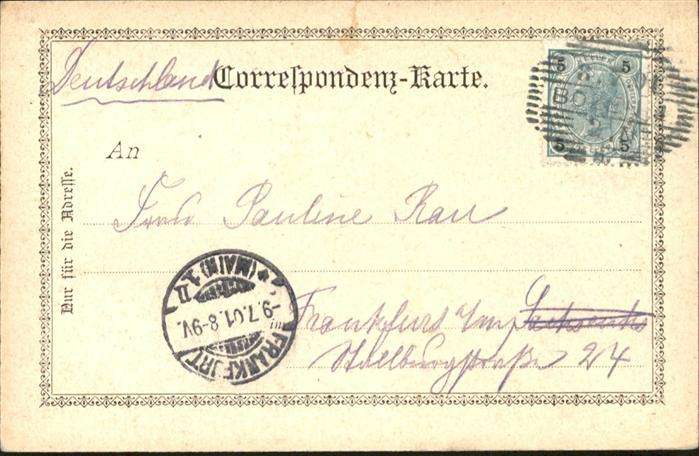 Deutschland
Correspondenz-Karte.
An
Frau Pauline Rau
Frankfurt a/m
Stollburgstraße 24
Nur für die Adresse.
FRANKFURT
(MAIN) 1.
-9.7.01.8-9V.
5 5
5 5